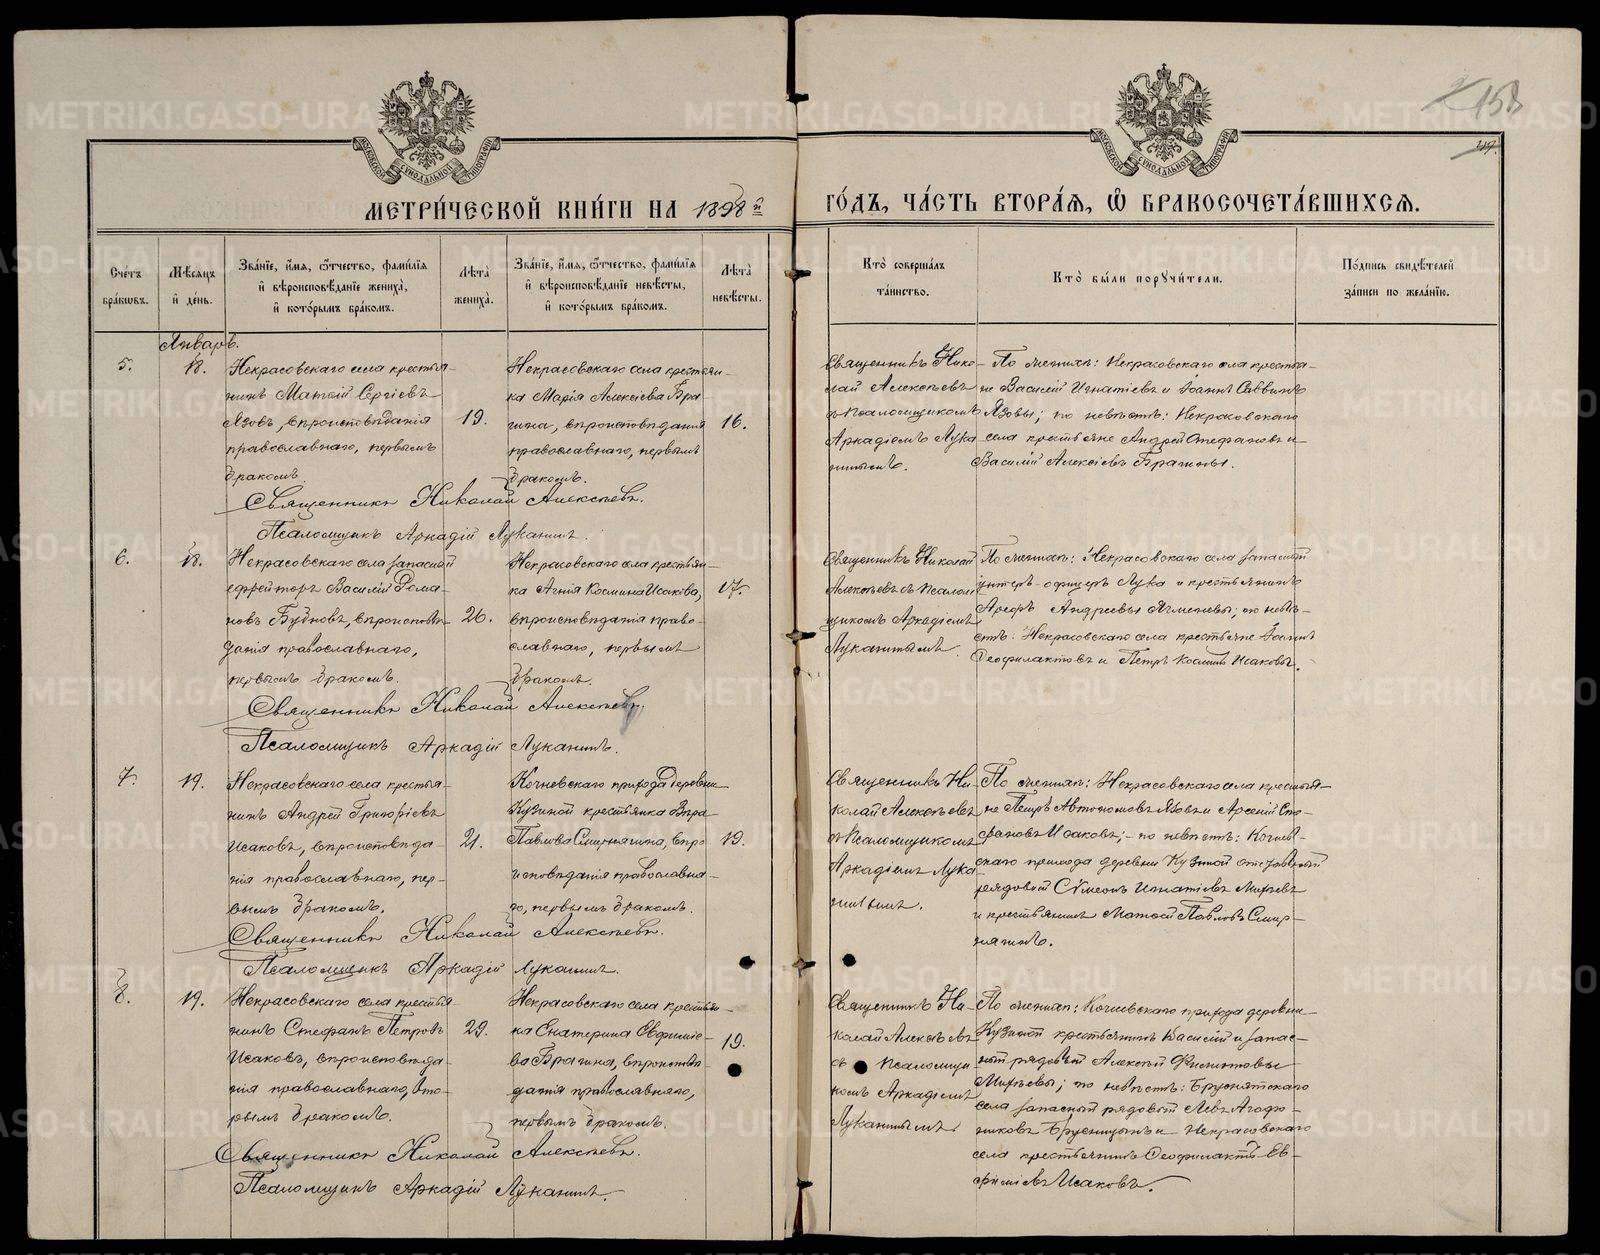 МЕТРИ́ЧЕСКОЙ КНИ́ГИ НА 1898й
ГО́ДЪ, ЧА́СТЬ ВТОРА́Я, Ѽ БРАКОСОЧЕТА́ВШИХСЯ.
158
МОСКОВСКОЙ СѴНОДАЛЬНОЙ ТИПОГРАФІИ
МОСКОВСКОЙ СѴНОДАЛЬНОЙ ТИПОГРАФІИ
Сче́тъ бра́кѡвъ.
Мѣ́сяцъ и҆ де́нь.
Зва́нїе, и҆́мя, ѻ҆́тчество, фами́лїя и҆ вѣроисповѣ́данїе жениха̀, и҆ кото́рымъ бра́комъ.
Лѣ́та жениха̀.
Зва́нїе, и҆́мя, ѻ҆́тчество, фами́лїя и҆ вѣроисповѣ́данїе невѣ́сты, и҆ кото́рымъ бра́комъ.
Лѣ́та невѣ́сты.
Кто̀ соверша́лъ та́инство.
Кто̀ бы́ли порꙋчи́тели.
По́дпись свидѣ́телей за́писи по жела́нїю.
Январь.
5.
18.
Некрасовскаго села крестья-
нинъ Матѳій Сергіевъ
Язовъ, вѣроисповѣданія
православнаго, первымъ
бракомъ.
19.
Некрасовскаго села крестьян-
ка Марія Алексіева Бра-
гина, вѣроисповѣданія
православнаго, первымъ
бракомъ.
16.
Священникъ Нико-
лай Алексѣевъ
съ Псаломщикомъ
Аркадіемъ Лука-
нинымъ.
По женихѣ: Некрасовскаго села крестья-
не Василій Игнатіевъ и Іоаннъ Саввинъ
Язовы; по невѣстѣ: Некрасовскаго
села крестьяне Андрей Стефановъ и
Василій Алексіевъ Брагины.
Священникъ Николай Алексѣевъ.
Псаломщикъ Аркадій Луканинъ.
6.
18.
Некрасовскаго села запасной
ефрейторъ Василій Рома-
новъ Бубновъ, вѣроисповѣ-
данія православнаго,
первымъ бракомъ.
26.
Некрасовскаго села крестьян-
ка Агнія Космина Исакова,
вѣроисповѣданія право-
славнаго, первымъ
бракомъ.
17.
Священникъ Николай
Алексѣевъ съ Псалом
щикомъ Аркадіемъ
Луканинымъ.
По женихѣ: Некрасовскаго села запасной
унтеръ-офицеръ Лука и крестьянинъ
Андреевы Ячменевы; по невѣ-
стѣ: Некрасовскаго села крестьяне Іоаннъ
Ѳеофилактовъ и Петръ Косминъ Исаковы.
Священникъ Николай Алексѣевъ.
Псаломщикъ Аркадій Луканинъ.
7.
19.
Некрасовскаго села крестья-
нинъ Андрей Григоріевъ
Исаковъ, вѣроисповѣда-
нія православнаго, пер-
вымъ бракомъ.
21.
Кочневскаго прихода деревни
Кузиной крестьянка Вѣра
Павлова Смирнягина, вѣро
исповѣданія православна-
го, первымъ бракомъ.
19.
Священникъ Ни-
колай Алексѣевъ
съ Псаломщикомъ
Аркадіемъ Лука-
нинымъ.
По женихѣ: Некрасовскаго села крестья-
не Петръ Автономовъ Язовъ и Арсеній Сте-
фановъ Исаковъ; - по невѣстѣ: Кочнев-
скаго прихода деревни Кузиной отставной
рядовой Сѵмеонъ Игнатіевъ Михѣевъ
и крестьянинъ Матѳій Павловъ Смир-
нягинъ.
Священникъ Николай Алексѣевъ.
Псаломщикъ Аркадій Луканинъ.
8.
19.
Некрасовскаго села крестья
нинъ Стефанъ Петровъ
Исаковъ, вѣроисповѣда-
нія православнаго, вто-
рымъ бракомъ.
29.
Некрасовскаго села крестьян-
ка Екатерина Евфиміе-
ва Брагина, вѣроисповѣ-
данія православнаго,
первымъ бракомъ.
19.
Священникъ Ни-
колай Алексѣевъ
съ Псаломщи-
комъ Аркадіемъ
Луканинымъ.
По женихѣ: Кочневскаго прихода деревни
Кузиной крестьянинъ Василій и запас-
ный рядовой Алексѣй Филипповы
Михѣевы; по невѣстѣ: Бруснятскаго
села запасный рядовой Левъ Агафо-
никовъ Брусницынъ и Некрасовскаго
села крестьянинъ Ѳеофилактъ Ев-
фиміевъ Исаковъ.
Священникъ Николай Алексѣевъ.
Псаломщикъ Аркадій Луканинъ.
METRIKI.GASO-URAL.RU